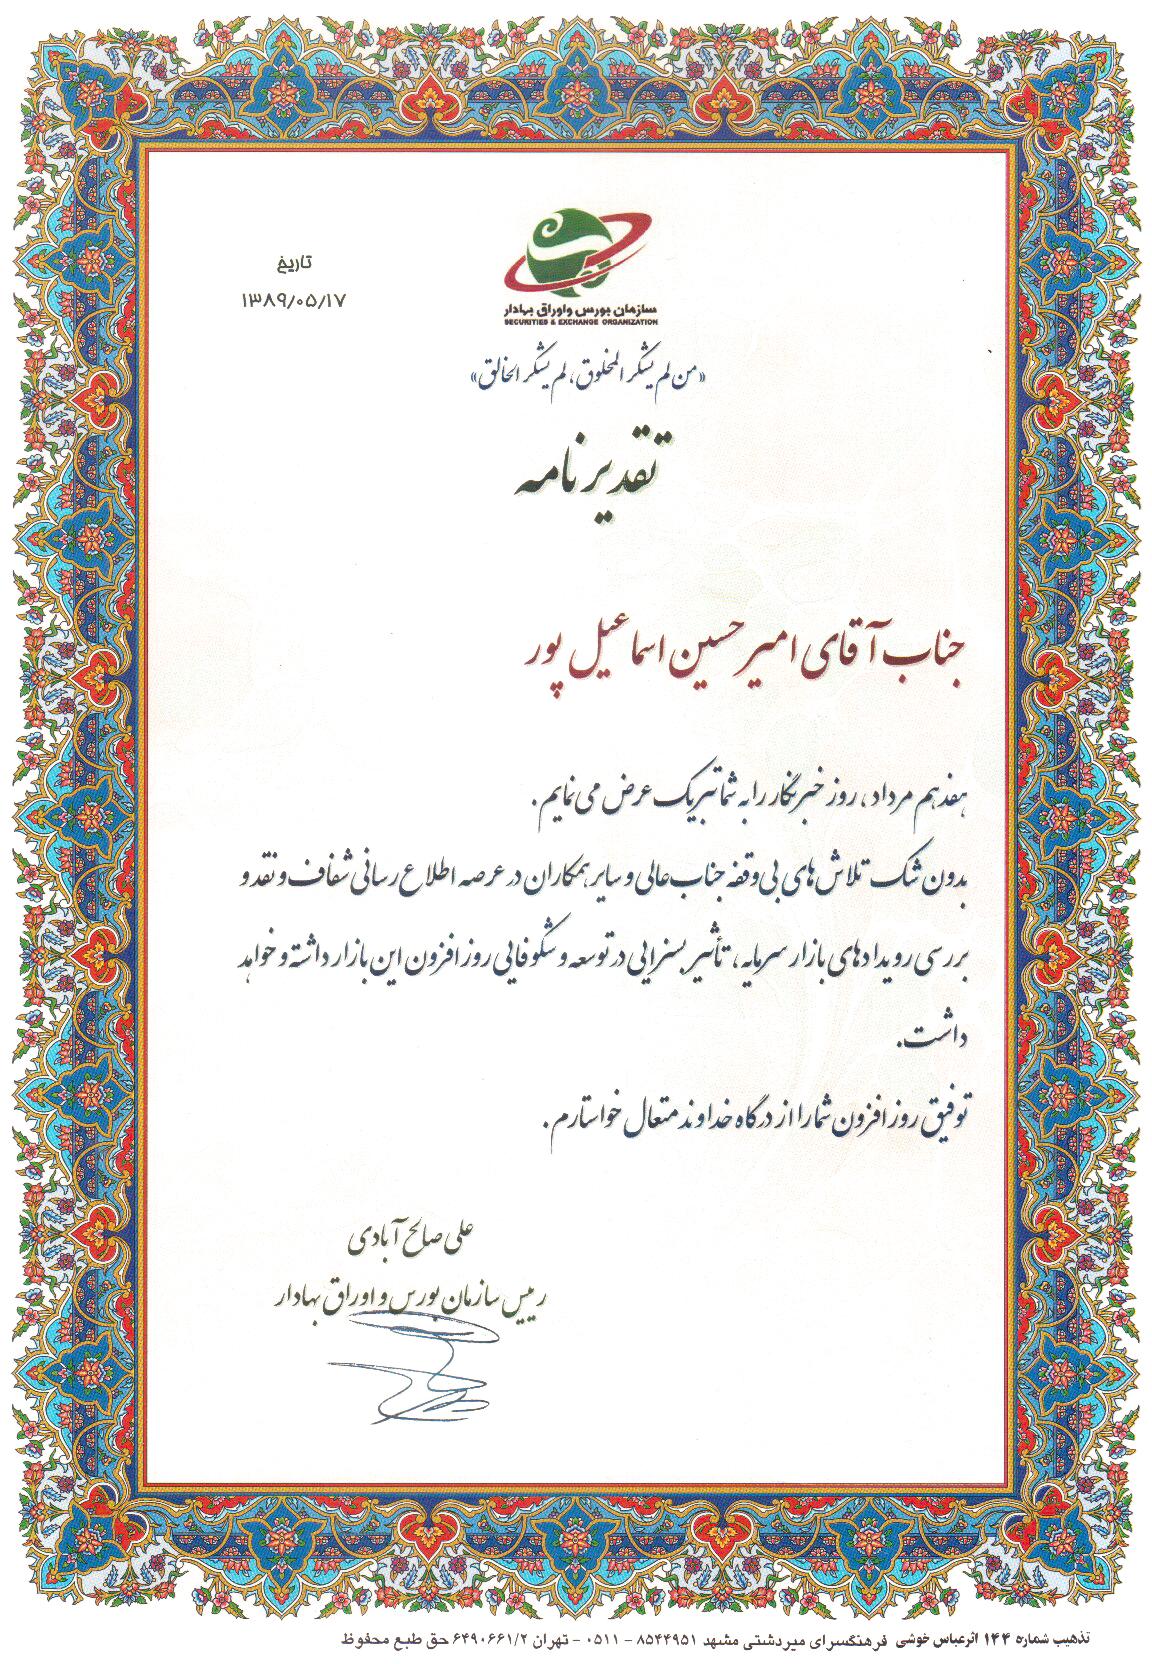 سازمان بورس و اوراق بهادار
SECURITIES & EXCHANGE ORGANIZATION
تاریخ
۱۳۸۹/۰۵/۱۷
«من لم یشکر المخلوق، لم یشکر الخالق»
تقدیرنامه
جناب آقای امیرحسین اسماعیل پور
هفدهم مرداد، روز خبرنگار را به شما تبریک عرض می نمایم.
بدون شک تلاش های بی وقفه جناب عالی و سایر همکاران در عرصه اطلاع رسانی شفاف و نقد و
بررسی رویدادهای بازار سرمایه، تأثیر بسزایی در توسعه و شکوفایی روز افزون این بازار داشته و خواهد
داشت.
توفیق روز افزون شما را از درگاه خداوند متعال خواستارم.
علی صالح آبادی
رییس سازمان بورس و اوراق بهادار
تذهیب شماره ۱۴۴ اثرعباس خوشی فرهنگسرای میردشتی مشهد ۸۵۴۴۹۵۱ - ۰۵۱۱ - تهران ۶۴۹۰۶۶۱/۲ حق طبع محفوظ